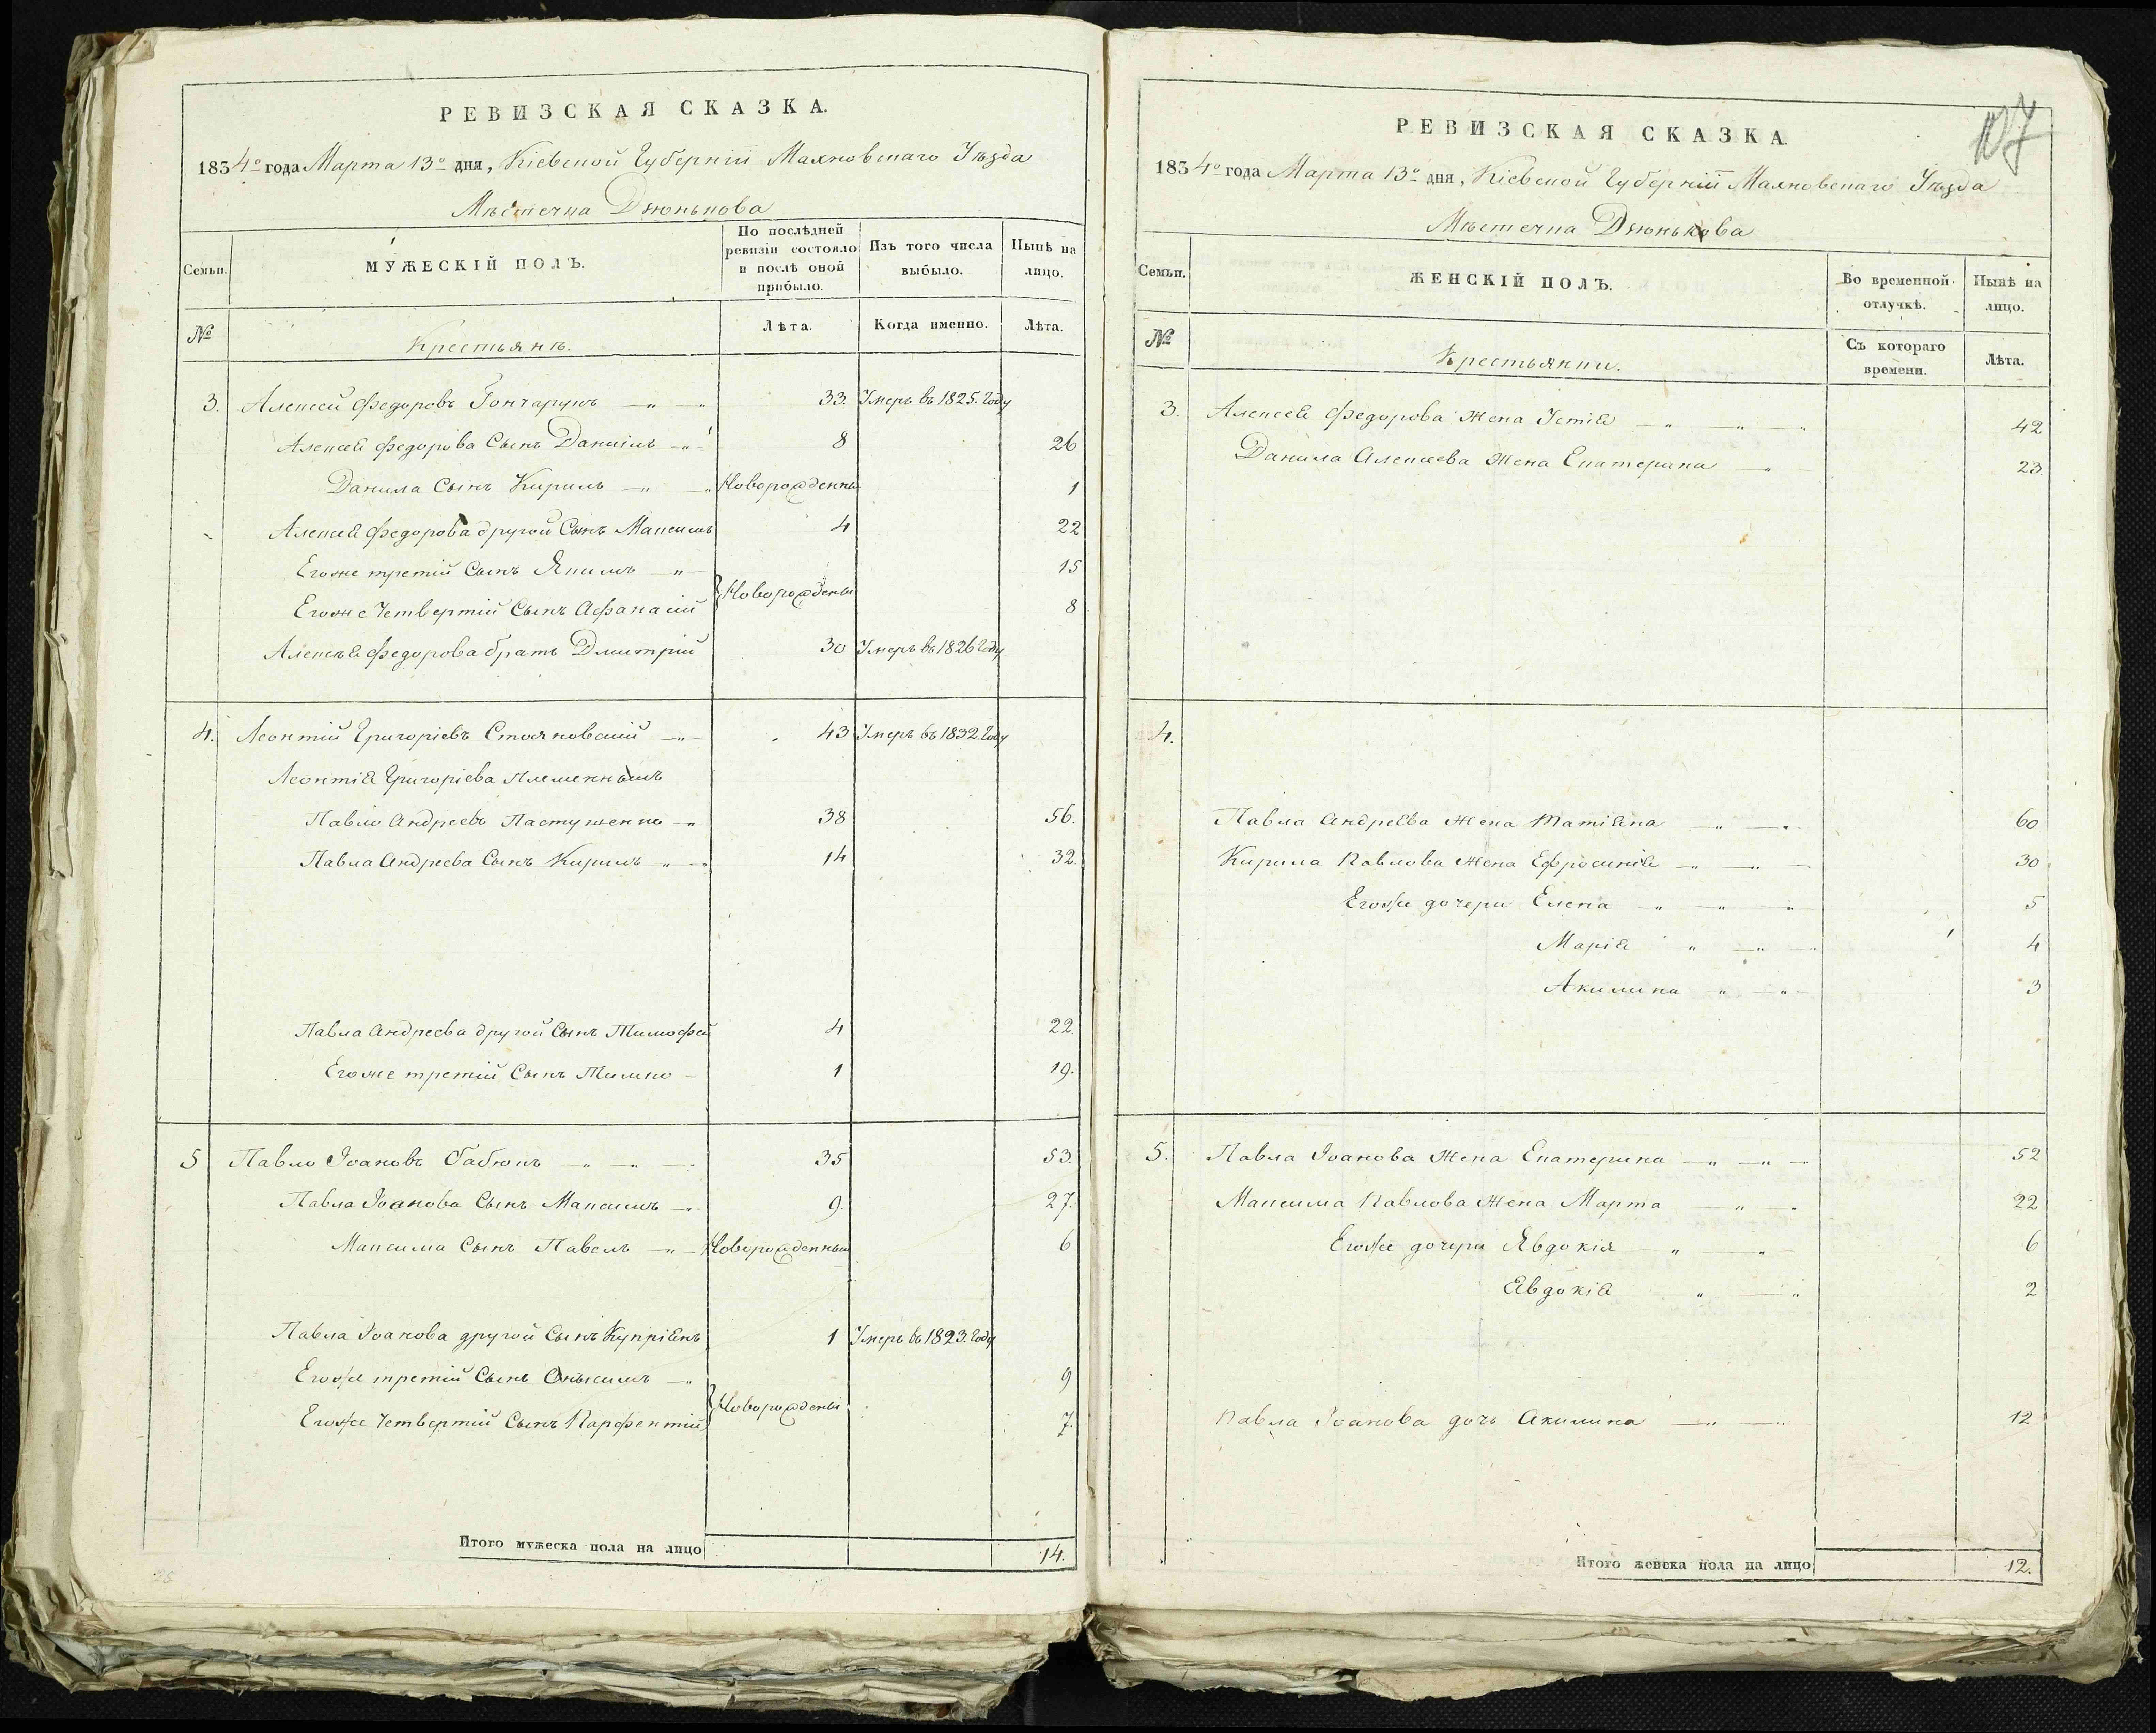 РЕВИЗСКАЯ СКАЗКА.
1834го года Марта 13го дня, Кіевской Губерніи Махновскаго Уѣзда
Мѣстечка Дзюнькова
Семьи.
МУЖЕСКІЙ ПОЛЪ.
По послѣдней ревизіи состояло и послѣ оной прибыло.
Изъ того числа выбыло.
Нынѣ на лицо.
№
Крестьянъ.
Лѣта.
Когда именно.
Лѣта.
3. Алексей Федоровъ Гончарукъ 33. Умеръ въ 1825. Году
Алексея Федорова Сынъ Даниилъ 8 26
Данила Сынъ Кирилъ Новорожденны 1
Алексея Федорова другой Сынъ Максимъ 4 22
Егоже третій Сынъ Якимъ 15
Новорождены
Егоже Четвертій Сынъ Афанасій 8
Алексея Федорова братъ Дмитрій 30 Умеръ въ 1826 Году
4. Леонтій Григоріевъ Стояновскій 43 Умеръ въ 1832. Году
Леонтія Григоріева Племенныкъ
Павло Андреевъ Пастушенко 38 56.
Павла Андреева Сынъ Кирилъ 14 32.
Павла Андреева другой Сынъ Тимофей 4 22.
Егоже третій Сынъ Тимко 1 19.
5 Павло Іоановъ Бабюкъ 35 53.
Павла Іоанова Сынъ Максимъ 9. 27.
Максима Сынъ Павелъ Новорожденны 6
Павла Іоанова другой Сынъ Купріянъ 1 Умеръ въ 1823. Году
Егоже третій Сынъ Онысимъ 9
Новорождены
Егоже Четвертій Сынъ Парфентій 7.
Итого мужеска пола на лицо 14.
107
РЕВИЗСКАЯ СКАЗКА
1834го года Марта 13го дня, Кіевской Губерніи Махновскаго Уѣзда
Мѣстечка Дзюнькова
Семьи.
ЖЕНСКІЙ ПОЛЪ.
Во временной отлучкѣ.
Нынѣ на лицо.
№
Крестьянки.
Съ котораго времени.
Лѣта.
3. Алексея Федорова Жена Устія 42
Данила Алексеева Жена Екатерина 23
4.
Павла Андреева Жена Татіяна 60
Кирила Павлова Жена Ефросинія 30
Егоже дочери Елена 5
Марія 4
Акилина 3
5. Павла Іоанова Жена Екатерина 52
Максима Павлова Жена Марта 22
Егоже дочери Явдокія 6
Явдокія 2
Павла Іоанова дочь Акилина 12
Итого женска пола на лицо 12.